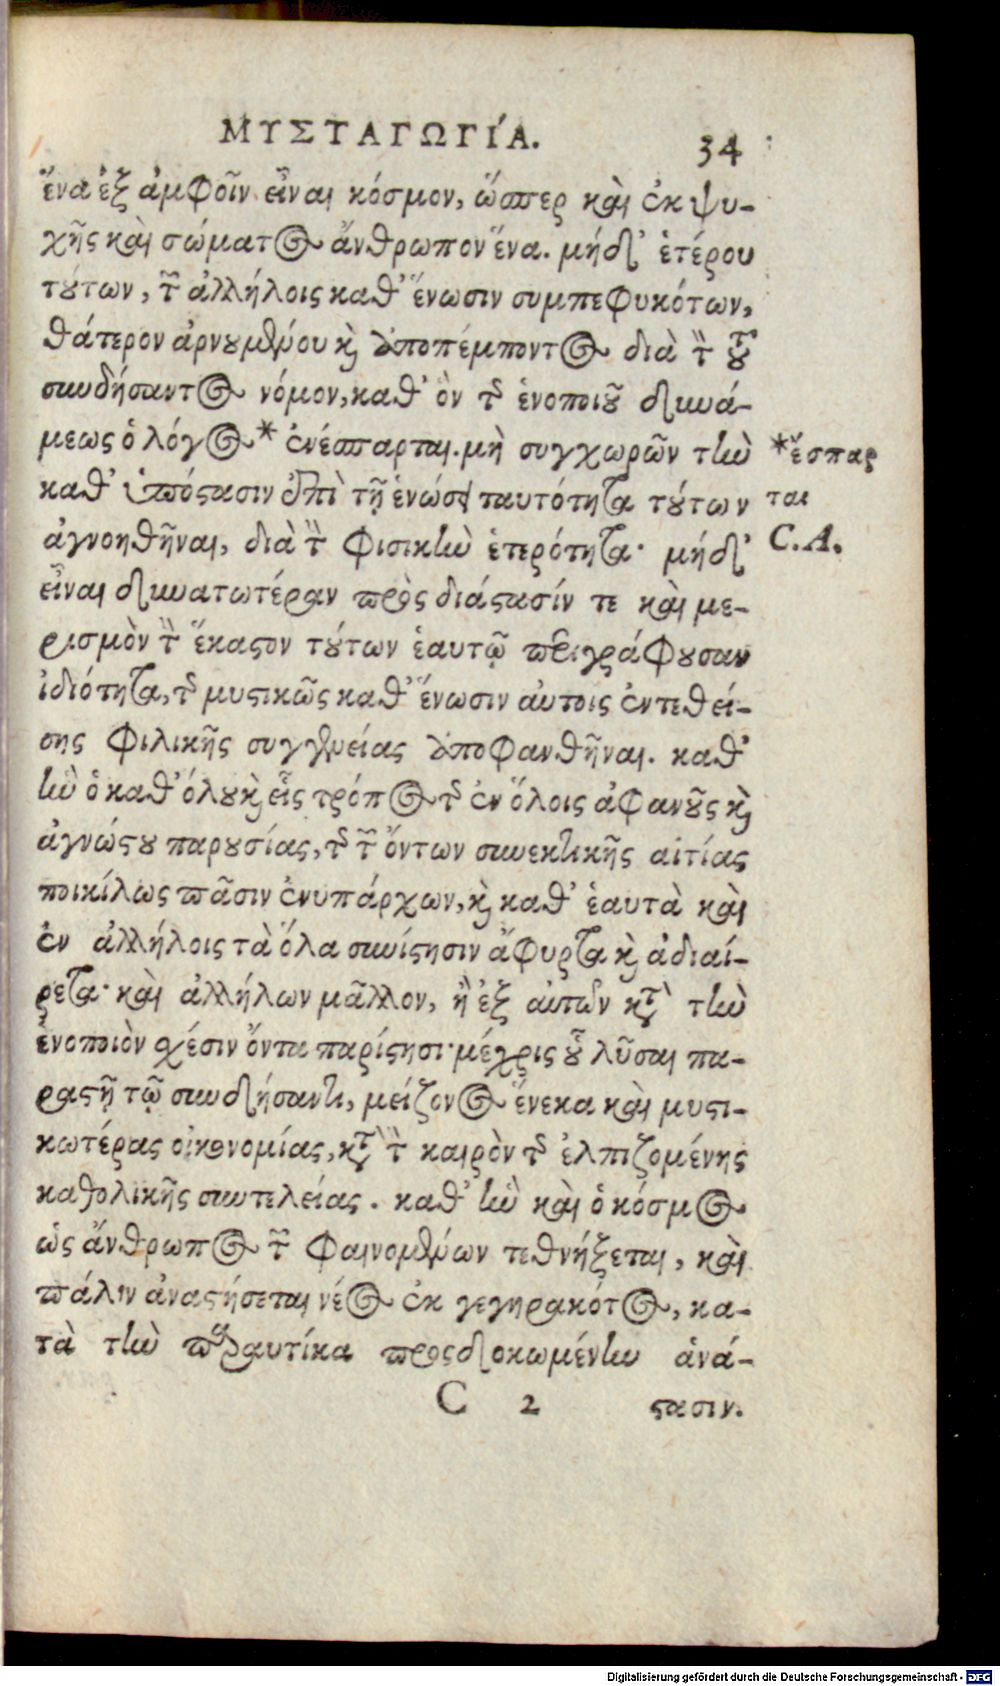 ΜΥΣΤΑΓΩΓΊΑ. 34
ἕνα ἐξ ἀμφοῖν εἶναι κόσμον, ὥσπερ καὶ ἐκ ψυ-
χῆς καὶ σώματος ἄνθρωπον ἕνα. μήδ' ἑτέρου
τούτων, τῶν ἀλλήλοις καθ' ἕνωσιν συμπεφυκότων,
θάτερον ἀρνουμένου καὶ ἀποπέμποντος διὰ τὸν τοῦ
συνδήσαντος νόμον, καθ' ὃν τῆς ἑνοποιοῦ δυνά-
μεως ὁ λόγος* ἐνέσπαρται. μὴ συγχωρῶν τὴν
*ἔσπαρ
καθ' ὑπόστασιν ἐπὶ τῇ ἑνώσει ταυτότητα τούτων
ται
ἀγνοηθῆναι, διὰ τὴν φισικὴν ἑτερότητα· μήδ'
C.A.
εἶναι δυνατωτέραν πρὸς διάστασίν τε καὶ με-
ρισμὸν τὴν ἕκαστον τούτων ἑαυτῷ περιγράφουσαν
ἰδιότητα, τῆς μυστικῶς καθ' ἕνωσιν αὐτοις ἐντεθεί-
σης φιλικῆς συγγενείας ἀποφανθῆναι. καθ'
ἣν ὁ καθ' ὅλου καὶ εἷς τρόπος τῆς ἐν ὅλοις ἀφανοῦς καὶ
ἀγνώστου παρουσίας, τῆς τῶν ὄντων συνεκτικῆς αἰτίας
ποικίλως πᾶσιν ἐνυπάρχων, καὶ καθ' ἑαυτὰ καὶ
ἐν ἀλλήλοις τὰ ὅλα συνίστησιν ἄφυρτα καὶ ἀδιαί-
ρετα· καὶ ἀλλήλων μᾶλλον, ἢ ἐξ αὐτῶν κατὰ τὴν
ἑνοποιὸν σχέσιν ὄντα παρίστησι· μέχρις οὗ λῦσαι πα-
ραστῇ τῷ συνδήσαντι, μείζονος ἕνεκα καὶ μυστι-
κωτέρας οἰκονομίας, κατὰ τὸν καιρὸν τῆς ἐλπιζομένης
καθολικῆς συντελείας. καθ' ἣν καὶ ὁ κόσμος
ὡς ἄνθρωπος τῶν φαινομένων τεθνήξεται, καὶ
πάλιν ἀναστήσεται νέος ἐκ γεγηρακότος, κα-
τὰ τὴν παραυτίκα προςδοκωμένην ἀνά-
C 2 στασιν.
Digitalisierung gefördert durch die Deutsche Forschungsgemeinschaft - DFG